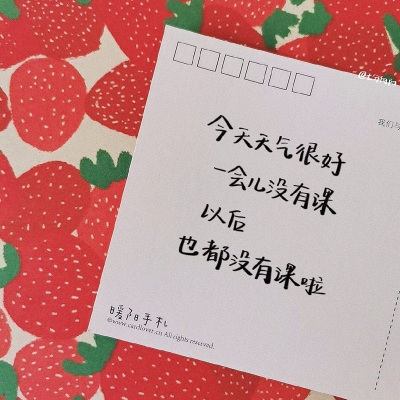 我们与
今天天气很好
一会儿没有课
以后
也都没有课啦
暖阳手札
©www.cardlover.cn All rights reserved.